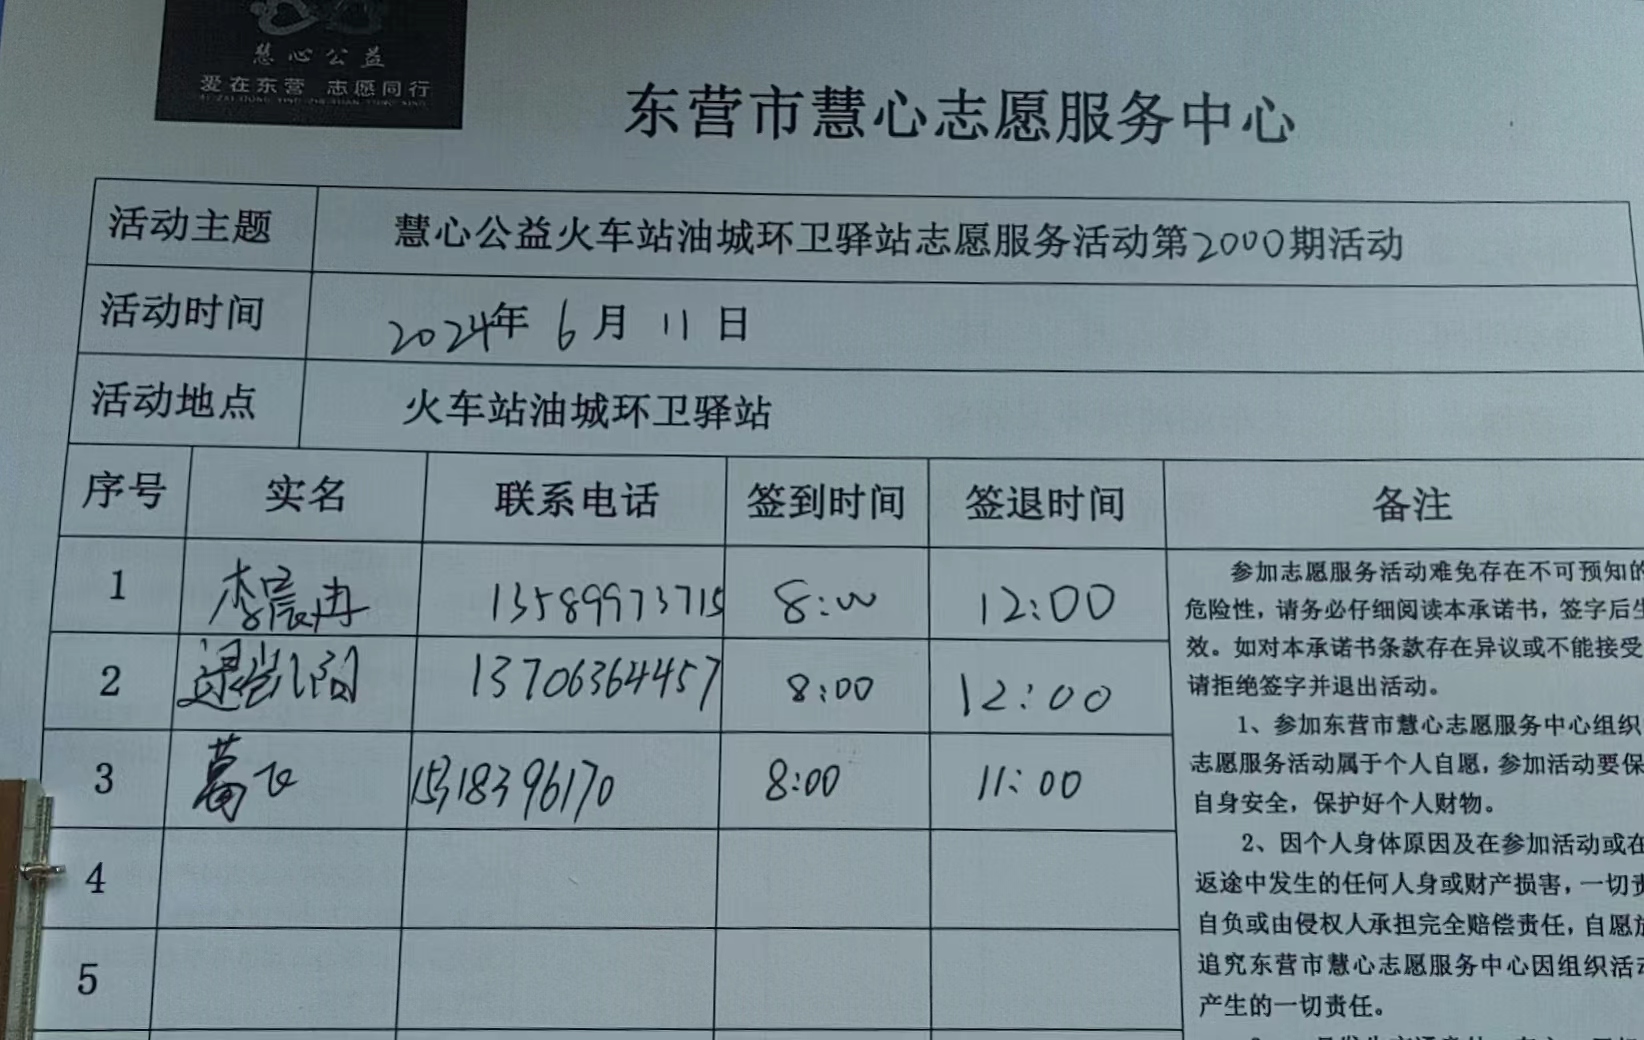 慧心公益
爱在东营 志愿同行
东营市慧心志愿服务中心
活动主题 慧心公益火车站油城环卫驿站志愿服务活动第2000期活动
活动时间 2024年 6月 11日
活动地点 火车站油城环卫驿站
序号 实名 联系电话 签到时间 签退时间 备注
1 李宸冉 13589973715 8:00 12:00
2 13706364457 8:00 12:00
3 葛飞 15318396170 8:00 11:00
4
5
参加志愿服务活动难免存在不可预知的
危险性，请务必仔细阅读本承诺书，签字后生
效。如对本承诺书条款存在异议或不能接受
请拒绝签字并退出活动。
1、参加东营市慧心志愿服务中心组织
志愿服务活动属于个人自愿，参加活动要保
自身安全，保护好个人财物。
2、因个人身体原因及在参加活动或在
返途中发生的任何人身或财产损害，一切责
自负或由侵权人承担完全赔偿责任，自愿放
追究东营市慧心志愿服务中心因组织活动
产生的一切责任。